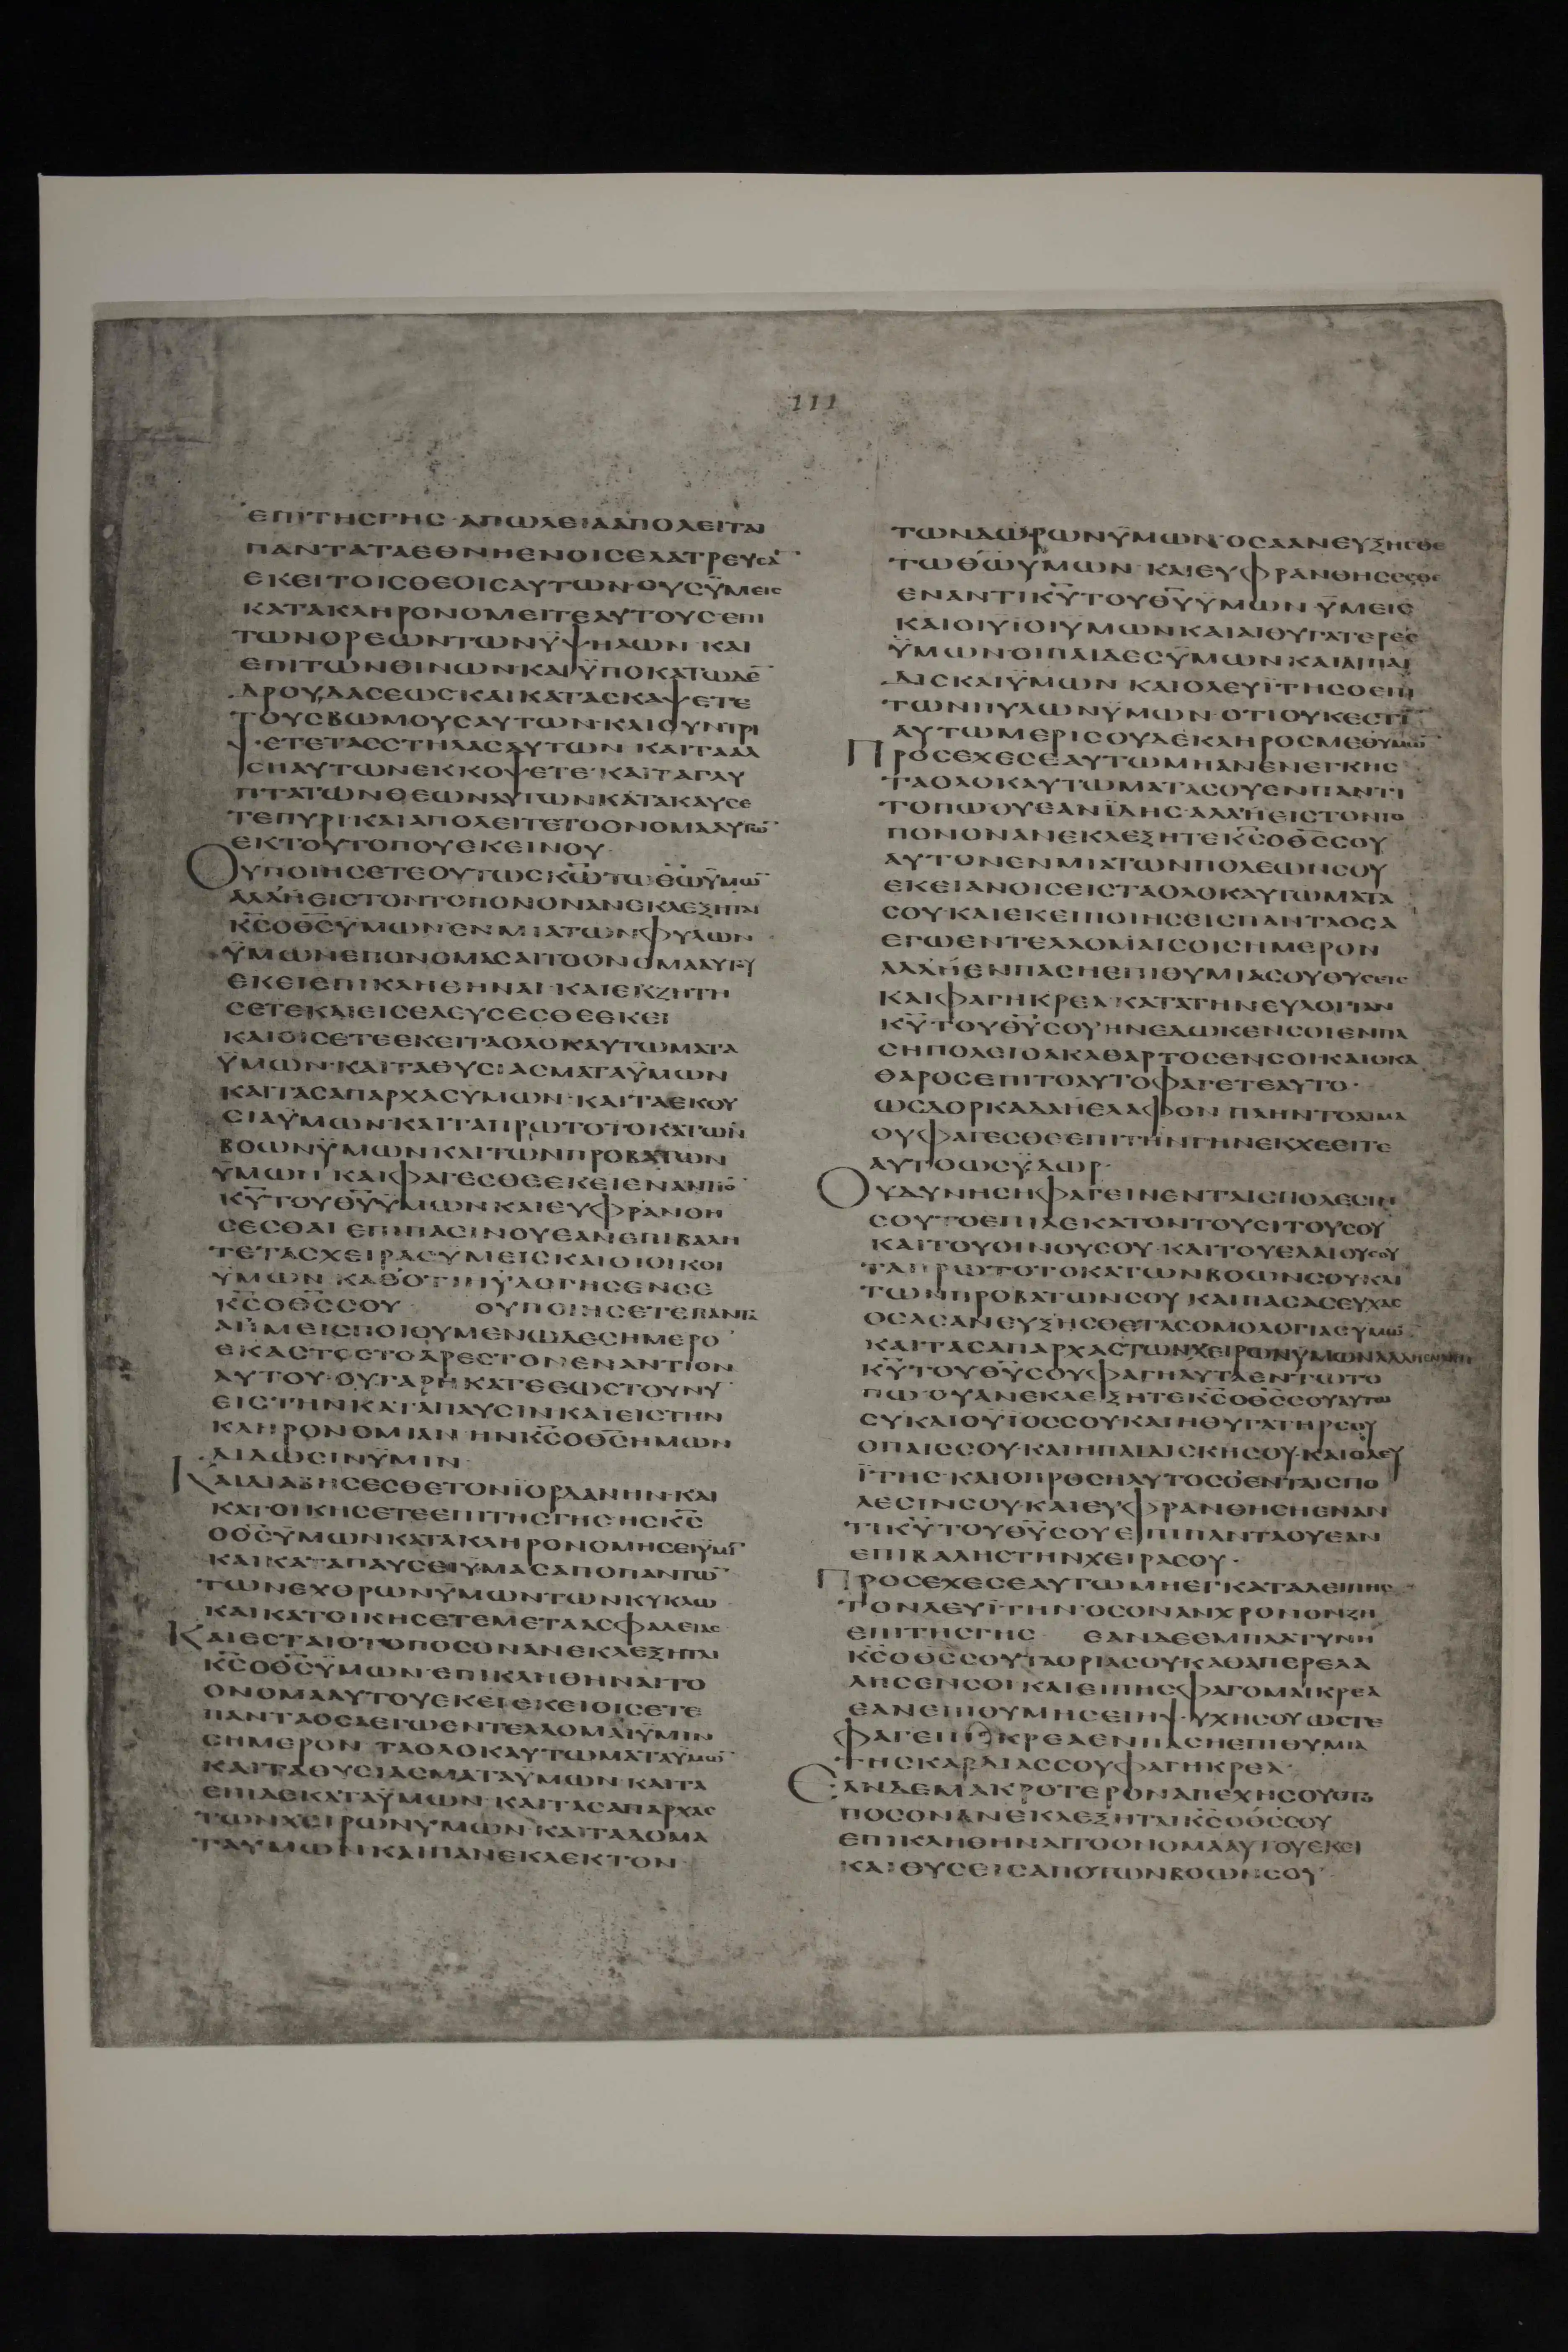 111
ΕΠΙΤΗΣΓΗΣ ΑΠΩΛΕΙΑΑΠΟΛΕΙΤΑΙ
ΠΑΝΤΑΤΑΕΘΝΗΕΝΟΙΣΕΛΑΤΡΕΥΣᾹ
ΕΚΕΙΤΟΙΣΘΕΟΙΣΑΥΤΩΝ ΟΥΣΫΜΕΙΣ
ΚΑΤΑΚΛΗΡΟΝΟΜΕΙΤΕΑΥΤΟΥΣ ΕΠΙ
ΤΩΝΟΡΕΩΝΤΩΝΫΨΗΛΩΝ ΚΑΙ
ΕΠΙΤΩΝΘΙΝΩΝΚΑΙΫΠΟΚΑΤΩΔΕ̄
ΔΡΟΥΔΑΣΕΩΣΚΑΙΚΑΤΑΣΚΑΨΕΤΕ
ΤΟΥΣΒΩΜΟΥΣΑΥΤΩΝ ΚΑΙΣΥΝΤΡΙ
ΨΕΤΕΤΑΣΣΤΗΛΑΣΑΥΤΩΝ ΚΑΙΤΑΑΛ
ΣΗΑΥΤΩΝΕΚΚΟΨΕΤΕ ΚΑΙΤΑΓΛΥ
ΠΤΑΤΩΝΘΕΩΝΑΥΤΩΝΚΑΤΑΚΑΥΣΕ
ΤΕΠΥΡΙ ΚΑΙΑΠΟΛΕΙΤΕΤΟΟΝΟΜΑΑΥΤΩ̄
ΕΚΤΟΥΤΟΠΟΥΕΚΕΙΝΟΥ
ΟΥΠΟΙΗΣΕΤΕΟΥΤΩΣΚ̄Ω̄ΤΩΘ̄Ω̄ΫΜΩ̄
ΑΛΛΗΕΙΣΤΟΝΤΟΠΟΝΟΝΑΝΕΚΛΕΞΗΤΑΙ
Κ̄Σ̄ΟΘ̄Σ̄ΫΜΩΝ ΕΝΜΙΑΤΩΝΦΥΛΩΝ
ΫΜΩΝΕΠΟΝΟΜΑΣΑΙΤΟΟΝΟΜΑΑΥΤΟΥ
ΕΚΕΙΕΠΙΚΛΗΘΗΝΑΙ ΚΑΙΕΚΖΗΤΗ
ΣΕΤΕΚΑΙΕΙΣΕΛΕΥΣΕΣΘΕΕΚΕΙ
ΚΑΙΟΙΣΕΤΕΕΚΕΙΤΑΟΛΟΚΑΥΤΩΜΑΤΑ
ΫΜΩΝ ΚΑΙΤΑΘΥΣΙΑΣΜΑΤΑΫΜΩΝ
ΚΑΙΤΑΣΑΠΑΡΧΑΣΥΜΩΝ ΚΑΙΤΑΕΚΟΥ
ΣΙΑΫΜΩΝ ΚΑΙΤΑΠΡΩΤΟΤΟΚΑΤΩΝ
ΒΟΩΝΫΜΩΝΚΑΙΤΩΝΠΡΟΒΑΤΩΝ
ΫΜΩΝ ΚΑΙΦΑΓΕΣΘΕΕΚΕΙΕΝΑΝΤΙΟ̄
Κ̄Ῡ ΤΟΥΘ̄Ῡ ΫΜΩΝΚΑΙΕΥΦΡΑΝΘΗ
ΣΕΣΘΑΙ ΕΠΙΠΑΣΙΝΟΥΕΑΝΕΠΙΒΑΛΗ
ΤΕΤΑΣΧΕΙΡΑΣΥΜΕΙΣΚΑΙΟΙΟΙΚΟΙ
ΫΜΩΝ ΚΑΘΟΤΙΗΥΛΟΓΗΣΕΝΣΕ
Κ̄Σ̄ΟΘ̄Σ̄ΣΟΥ ΟΥΠΟΙΗΣΕΤΕΠΑΝΤΑ
ΑΗΜΕΙΣΠΟΙΟΥΜΕΝΩΔΕΣΗΜΕΡΟ
ΕΚΑΣΤΟΣΤΟΑΡΕΣΤΟΝΕΝΑΝΤΙΟΝ
ΑΥΤΟΥ ΟΥΓΑΡΗΚΑΤΕΕΩΣΤΟΥΝῩ
ΕΙΣΤΗΝΚΑΤΑΠΑΥΣΙΝΚΑΙΕΙΣΤΗΝ
ΚΛΗΡΟΝΟΜΙΑΝ ΗΝΚ̄Σ̄ΟΘ̄Σ̄ΗΜΩΝ
ΔΙΔΩΣΙΝΫΜΙΝ
ΚΑΙΔΙΑΒΗΣΕΣΘΕΤΟΝΪΟΡΔΑΝΗΝ ΚΑΙ
ΚΑΤΟΙΚΗΣΕΤΕΕΠΙΤΗΣΓΗΣ ΗΣΚ̄Σ̄
ΟΘ̄Σ̄ΫΜΩΝΚΑΤΑΚΛΗΡΟΝΟΜΗΣΕΙΫΜῙ
ΚΑΙΚΑΤΑΠΑΥΣΕΙΫΜΑΣΑΠΟΠΑΝΤΩ̄
ΤΩΝΕΧΘΡΩΝΫΜΩΝΤΩΝΚΥΚΛΩ
ΚΑΙΚΑΤΟΙΚΗΣΕΤΕΜΕΤΑΑΣΦΑΛΕΙΑΣ
ΚΑΙΕΣΤΑΙΟΤΟΠΟΣΟΝΑΝΕΚΛΕΞΗΤΑΙ
Κ̄Σ̄ΟΘ̄Σ̄ΫΜΩΝ ΕΠΙΚΛΗΘΗΝΑΙΤΟ
ΟΝΟΜΑΑΥΤΟΥΕΚΕΙ ΕΚΕΙΟΙΣΕΤΕ
ΠΑΝΤΑΟΣΑΕΓΩΕΝΤΕΛΛΟΜΑΙΫΜΙΝ
ΣΗΜΕΡΟΝ ΤΑΟΛΟΚΑΥΤΩΜΑΤΑΫΜΩ̄
ΚΑΙΤΑΘΥΣΙΑΣΜΑΤΑΫΜΩΝ ΚΑΙΤΑ
ΕΠΙΔΕΚΑΤΑΫΜΩΝ ΚΑΙΤΑΣΑΠΑΡΧΑΣ
ΤΩΝΧΕΙΡΩΝΥΜΩΝ ΚΑΙΤΑΔΟΜΑ
ΤΑΥΜΩΝΚΑΙΠΑΝΕΚΛΕΚΤΟΝ
ΤΩΝΔΩΡΩΝΫΜΩΝ ΟΣΑΑΝΕΥΞΗΣΘΕ
ΤΩΘ̄Ω̄ΥΜΩΝ ΚΑΙΕΥΦΡΑΝΘΗΣΕΣΘΕ
ΕΝΑΝΤΙΚ̄Ῡ ΤΟΥΘ̄Ῡ ΫΜΩΝ ΫΜΕΙΣ
ΚΑΙΟΙΥΪΟΙΥΜΩΝΚΑΙΑΙΘΥΓΑΤΕΡΕΣ
ΫΜΩΝΟΙΠΑΙΔΕΣΫΜΩΝ ΚΑΙΑΙΠΑΙ
ΔΙΣΚΑΙΫΜΩΝ ΚΑΙΟΛΕΥΪΤΗΣΟΕΠΙ
ΤΩΝΠΥΛΩΝΫΜΩΝ ΟΤΙΟΥΚΕΣΤῙ
ΑΥΤΩΜΕΡΙΣΟΥΔΕΚΛΗΡΟΣΜΕΘΥΜΩ̄
ΠΡΟΣΕΧΕΣΕΑΥΤΩΜΗΑΝΕΝΕΓΚΗΣ
ΤΑΟΛΟΚΑΥΤΩΜΑΤΑΣΟΥΕΝΠΑΝΤΙ
ΤΟΠΩ ΟΥΕΑΝΪΔΗΣ ΑΛΛΗΕΙΣΤΟΝΤΟ
ΠΟΝΟΝΑΝΕΚΛΕΞΗΤΕΚ̄Σ̄ΟΘ̄Σ̄ΣΟΥ
ΑΥΤΟΝΕΝΜΙΑΤΩΝΠΟΛΕΩΝΣΟΥ
ΕΚΕΙΑΝΟΙΣΕΙΣΤΑΟΛΟΚΑΥΤΩΜΑΤΑ
ΣΟΥ ΚΑΙΕΚΕΙΠΟΙΗΣΕΙΣΠΑΝΤΑΟΣΑ
ΕΓΩΕΝΤΕΛΛΟΜΑΙΣΟΙΣΗΜΕΡΟΝ
ΑΛΛΗΕΝΠΑΣΗΕΠΙΘΥΜΙΑΣΟΥΘΥΣΕΙΣ
ΚΑΙΦΑΓΗΚΡΕΑ ΚΑΤΑΤΗΝΕΥΛΟΓΙΑΝ
Κ̄Ῡ ΤΟΥΘ̄Ῡ ΣΟΥ ΗΝΕΔΩΚΕΝΣΟΙΕΝΠΑ
ΣΗΠΟΛΕΙΟΑΚΑΘΑΡΤΟΣΕΝΣΟΙΚΑΙΟΚΑ
ΘΑΡΟΣΕΠΙΤΟΑΥΤΟΦΑΓΕΤΕΑΥΤΟ
ΩΣΔΟΡΚΑΔΑΗΕΛΑΦΟΝ ΠΛΗΝΤΟΑΙΜΑ
ΟΥΦΑΓΕΣΘΕΕΠΙΤΗΝΓΗΝΕΚΧΕΕΙΤΕ
ΑΥΤΟΩΣΫΔΩΡ
ΟΥΔΥΝΗΣΗΦΑΓΕΙΝΕΝΤΑΙΣΠΟΛΕΣΙΝ
ΣΟΥΤΟΕΠΙΔΕΚΑΤΟΝΤΟΥΣΙΤΟΥΣΟΥ
ΚΑΙΤΟΥΟΙΝΟΥΣΟΥ ΚΑΙΤΟΥΕΛΑΙΟΥΣΟΥ
ΤΑΠΡΩΤΟΤΟΚΑΤΩΝΒΟΩΝΣΟΥΚΑΙ
ΤΩΝΠΡΟΒΑΤΩΝΣΟΥ ΚΑΙΠΑΣΑΣΕΥΧΑΣ
ΟΣΑΣΑΝΕΥΞΗΣΘΕΤΑΣΟΜΟΛΟΓΙΑΣΥΜΩ̄
ΚΑΙΤΑΣΑΠΑΡΧΑΣΤΩΝΧΕΙΡΩΝΫΜΩΝ
Κ̄Ῡ ΤΟΥΘ̄Ῡ ΣΟΥΦΑΓΗΑΥΤΑΕΝΤΩΤΟ
ΠΩ ΟΥΑΝΕΚΛΕΞΗΤΕΚ̄Σ̄ΟΘ̄Σ̄ΣΟΥΑΥΤΩ
ΣΥΚΑΙΟΥΪΟΣΣΟΥΚΑΙΗΘΥΓΑΤΗΡΣΟΥ
ΟΠΑΙΣΣΟΥ ΚΑΙΗΠΑΙΔΙΣΚΗΣΟΥ ΚΑΙΟΛΕΥ
ΪΤΗΣ ΚΑΙΟΠΡΟΣΗΛΥΤΟΣΟΕΝΤΑΙΣΠΟ
ΛΕΣΙΝΣΟΥ ΚΑΙΕΥΦΡΑΝΘΗΣΗΕΝΑΝ
ΤΙΚ̄Ῡ ΤΟΥΘ̄Ῡ ΣΟΥ ΕΠΙΠΑΝΤΑΟΥΕΑΝ
ΕΠΙΒΑΛΗΣΤΗΝΧΕΙΡΑΣΟΥ
ΠΡΟΣΕΧΕΣΕΑΥΤΩΜΗΕΓΚΑΤΑΛΕΙΠΗΣ
ΤΟΝΛΕΥΪΤΗΝ ΟΣΟΝΑΝΧΡΟΝΟΝΖΗ
ΕΠΙΤΗΣΓΗΣ ΕΑΝΔΕΕΜΠΛΑΤΥΝΗ
Κ̄Σ̄ΟΘ̄Σ̄ΣΟΥΤΑΟΡΙΑΣΟΥΚΑΘΑΠΕΡΕΛΑ
ΛΗΣΕΝΣΟΙ ΚΑΙΕΙΠΗΣΦΑΓΟΜΑΙΚΡΕΑ
ΕΑΝΕΠΙΘΥΜΗΣΕΙΗΨΥΧΗΣΟΥΩΣΤΕ
ΦΑΓΕΙΝΚΡΕΑΕΝΠΑΣΗΕΠΙΘΥΜΙΑ
ΤΗΣΚΑΡΔΙΑΣΣΟΥΦΑΓΗΚΡΕΑ
ΕΑΝΔΕΜΑΚΡΟΤΕΡΟΝΑΠΕΧΗΣΟΥΟΤΟ
ΠΟΣΟΝΑΝΕΚΛΕΞΗΤΑΙΚ̄Σ̄ΟΘ̄Σ̄ΣΟΥ
ΕΠΙΚΛΗΘΗΝΑΙΤΟΟΝΟΜΑΑΥΤΟΥΕΚΕΙ
ΚΑΙΘΥΣΕΙΣΑΠΟΤΩΝΒΟΩΝΣΟΥ